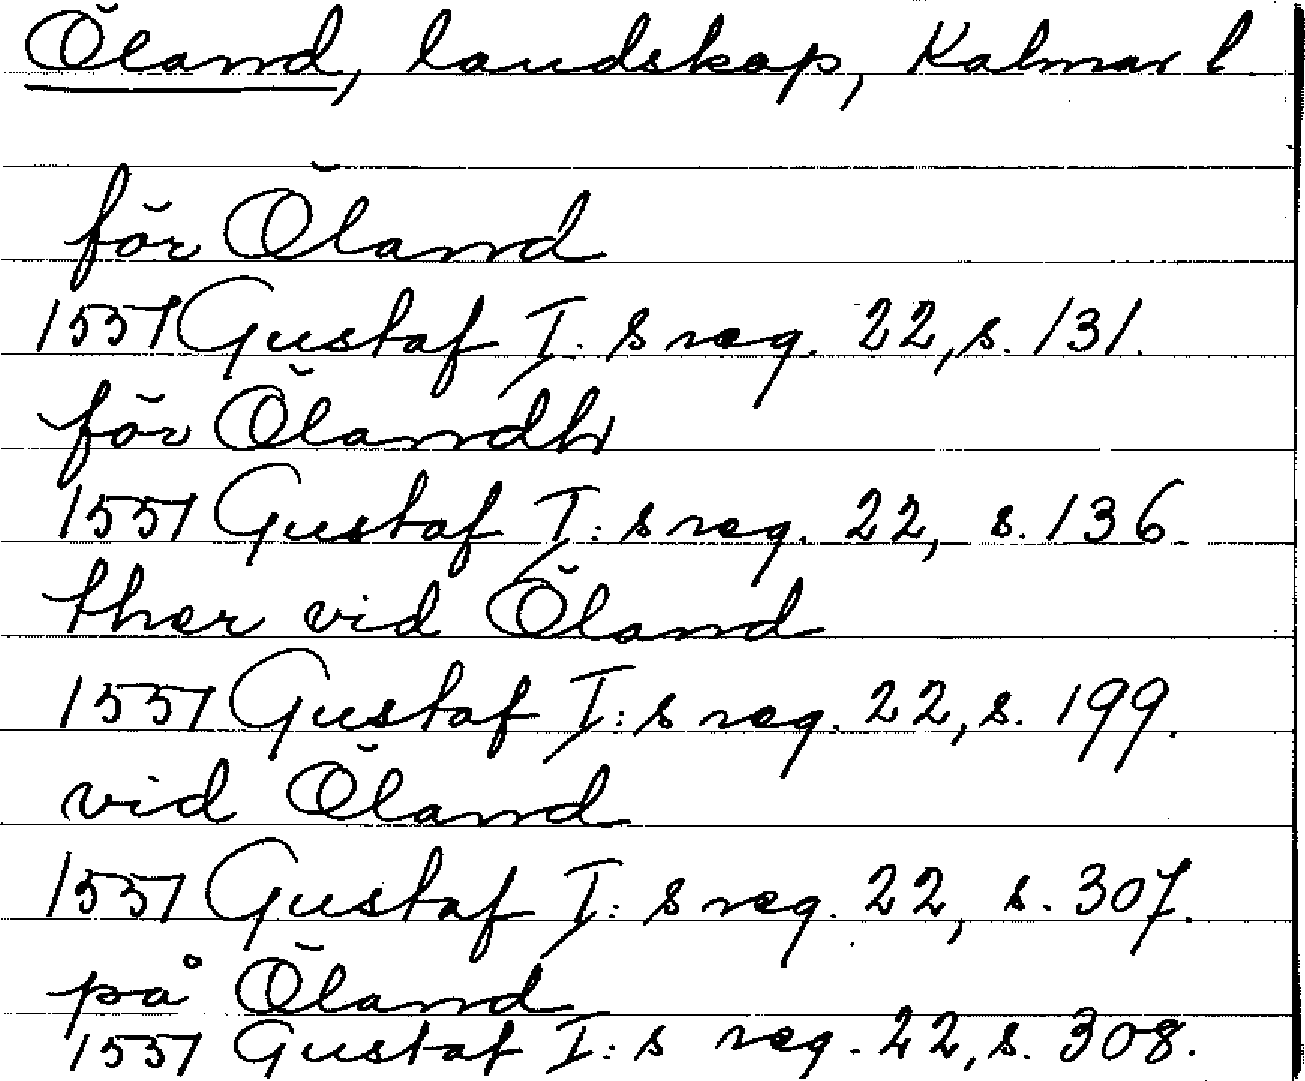 Öland, landskap, Kalmar l
för Öland
1551 Gustaf I:s reg. 22, s. 131.
för Ölandh
1551 Gustaf I:s reg. 22, s. 136.
ther vid Öland
1551 Gustaf I:s reg. 22, s. 199.
vid Öland
1551 Gustaf I:s reg. 22, s. 307.
på Öland
1551 Gustaf I:s reg. 22, s. 308.